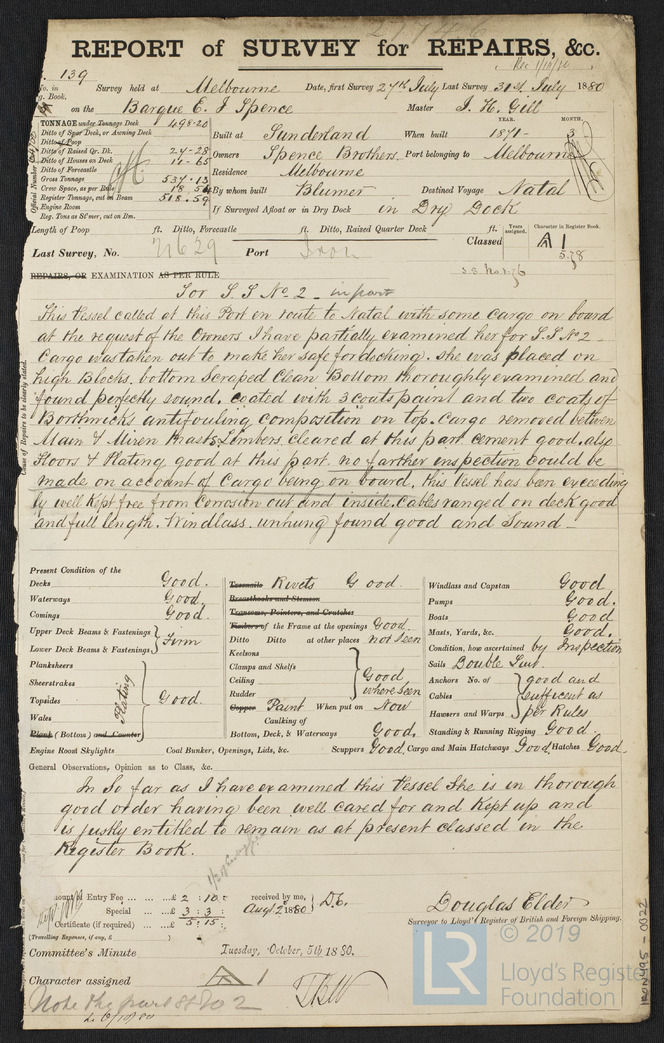 REPORT of SURVEY for REPAIRS, &c.
139
Survey held at Melbourne Date, first Survey 27th July Last Survey 31st July 1880
on the Barque E. J Spence Master J. H. Gill
TONNAGE under Tonnage Deck 498.20
Ditto of Spar Deck, or Awning Deck
Ditto of Poop
Ditto of Raised Qr. Dk. 24-28
Ditto of Houses on Deck 14-65
Ditto of Forecastle
Gross Tonnage 537.13
Crew Space, as per Rule 18.54
Register Tonnage, cut on Beam 518.59
Engine Room
Reg. Tons as St'mer, cut on Bm.
Official Number
YEAR. MONTH.
Built at Sunderland When built 1871- 3
Owners Spence Brothers. Port belonging to Melbourne
Residence Melbourne
By whom built Blumer Destined Voyage Natal
If Surveyed Afloat or in Dry Dock in Dry Dock
Length of Poop ft. Ditto, Forecastle ft. Ditto, Raised Quarter Deck ft.
Classed Years assigned. Character in Register Book.
A 1
5.78
Last Survey, No. 21629 Port Iron
REPAIRS, OR EXAMINATION AS PER RULE
For S. S No. 2 - in part
This Vessel called at this Port en route to Natal with some cargo on board
at the request of the Owners I have partially examined her for S.S No 2 -
Cargo was taken out to make her safe for docking. she was placed on
high Blocks, bottom Scraped Clean Bottom thoroughly examined and
found perfectly sound, coated with 3 coats paint and two coats of
Borthwicks antifouling composition on top. Cargo removed between
Main & Mizen Masts Limbers, cleared at this part cement good, also
Floors & Plating good at this part no farther inspection could be
made on account of Cargo being on board, this Vessel has been exceeding
ly well Kept free from Corrosion out and inside. Cables ranged on deck good
and full length. Windlass unhung found good and Sound -
Cause of Repairs to be clearly stated.
Present Condition of the
Decks Good.
Waterways Good.
Comings Good.
Upper Deck Beams & Fastenings
Lower Deck Beams & Fastenings Firm
Planksheers
Sheerstrakes
Topsides
Wales
Plank (Bottom) and Counter
Plating Good.
Treenails Rivets Good.
Breasthooks and Stemson
Transoms, Pointers, and Crutches
Timbers of the Frame at the openings Good.
Ditto Ditto at other places not seen
Keelsons
Clamps and Shelfs
Ceiling
Rudder
Good where seen
Copper Paint When put on Now
Caulking of
Bottom, Deck, & Waterways Good.
Windlass and Capstan Good
Pumps Good.
Boats Good
Masts, Yards, &c. Good.
Condition, how ascertained by Inspection
Sails Double Suit.
Anchors No. of
Cables
Hawsers and Warps
good and sufficent as per Rules
Standing & Running Rigging Good
Engine Room Skylights Coal Bunker, Openings, Lids, &c. Scuppers Good. Cargo and Main Hatchways Good. Hatches Good.
General Observations, Opinion as to Class, &c.
In So far as I have examined this Vessel She is in thorough
good order having been well cared for and Kept up and
is justly entitled to remain as at present classed in the
Register Book.
Entry Fee £ 2 : 10 :
Special £ 3 : 3 :
Certificate (if required) £ 5 : 15 :
(Travelling Expenses, if any, £ )
received by me,
Aug 2 1880
D.E.
Douglas Elder
Surveyor to Lloyd's Register of British and Foreign Shipping.
Committee's Minute Tuesday, October, 5th 1880.
Character assigned A 1
Note the part SS No 2
LR
© 2019
Lloyd's Register
Foundation
IRON495-0022